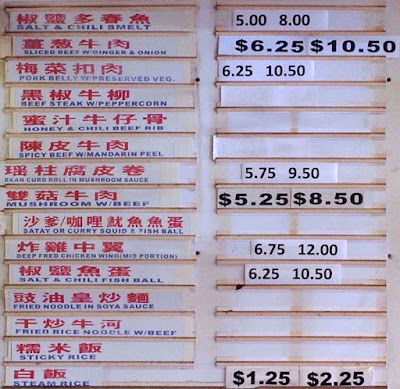 椒鹽多春魚 5.00 8.00
SALT & CHILI SMELT
薑葱牛肉 $6.25 $10.50
SLICED BEEF W/GINGER & ONION
梅菜扣肉 6.25 10.50
PORK BELLY W/PRESERVED VEG.
黑椒牛柳
BEEF STEAK W/PEPPERCORN
蜜汁牛仔骨
HONEY & CHILI BEEF RIB
陳皮牛肉
SPICY BEEF W/MANDARIN PEEL
瑤柱腐皮卷 5.75 9.50
BEAN CURD ROLL IN MUSHROOM SAUCE
雙菇牛肉 $5.25 $8.50
MUSHROOM W/BEEF
沙爹/咖喱魷魚魚蛋
SATAY OR CURRY SQUID & FISH BALL
炸雞中翼 6.75 12.00
DEEP FRIED CHICKEN WING(MID PORTION)
椒鹽魚蛋 6.25 10.50
SALT & CHILI FISH BALL
豉油皇炒麵
FRIED NOODLE IN SOYA SAUCE
干炒牛河
FRIED RICE NOODLE W/BEEF
糯米飯
STICKY RICE
白飯 $1.25 $2.25
STEAM RICE